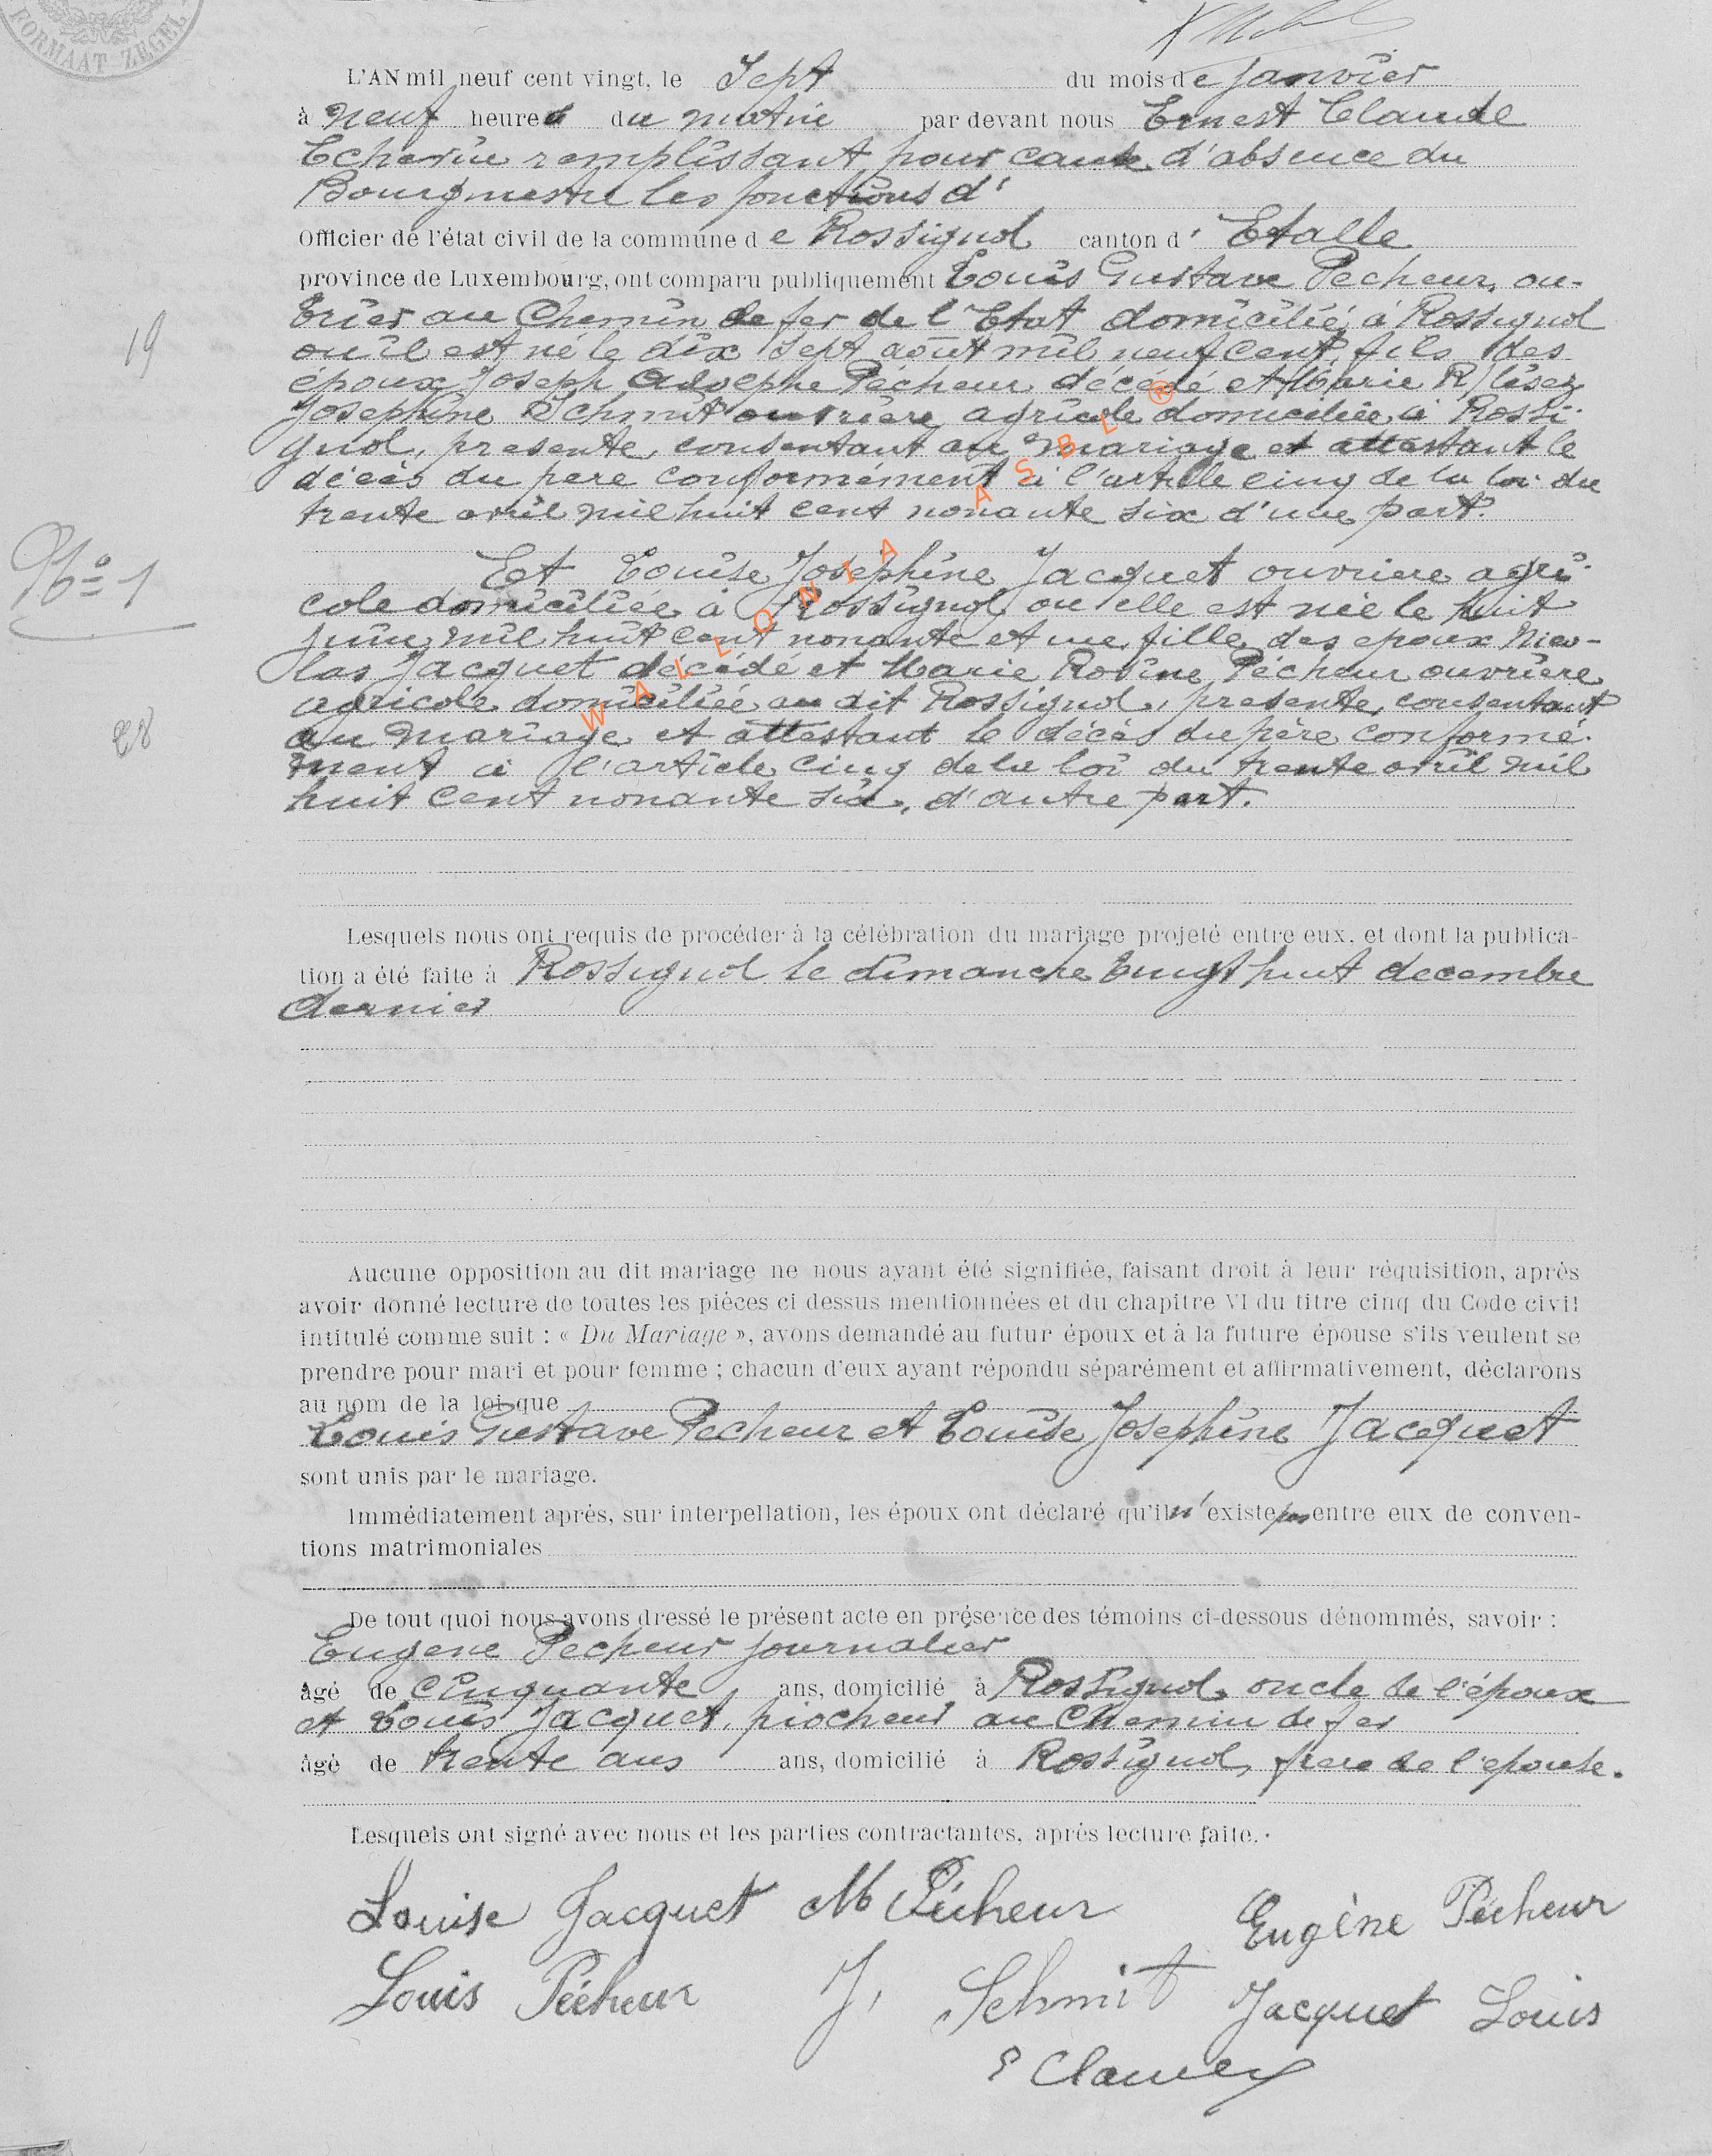 FORMAAT ZEGEL
L'AN mil neuf cent vingt, le Sept du mois de Janvier
à neuf heures du matin par devant nous Ernest Claude
Echevin remplissant pour cause d'absence du
Bourgmestre les fonctions d'
Officier de l'état civil de la commune de Rossignol canton d' Etalle
province de Luxembourg, ont comparu publiquement Louis Gustave Pecheur, ou-
vrier au Chemin de fer de l'Etat domicilié à Rossignol
où il est né le dix Sept août mil neuf cent, fils des
19
époux Joseph Adolphe Pécheur décédé et Marie
Josephine Schmit ouvrière agricole domiciliée à Rossi-
gnol, presente, consentant au mariage et attestant le
décès du pere conformément à l'article cinq de la loi du
trente avril mil huit cent nonante six d'une part.
No 1
Et Louise Josephine Jacquet ouvriere agri-
cole domiciliée à Rossignol où elle est née le huit
juin mil huit cent nonante et une, fille des epoux Nico-
las Jacquet décédé et Marie Rosine Pécheur ouvrière
agricole domiciliée au dit Rossignol, presente, consentant
28
au mariage et attestant le décès du père conformé-
ment à l'article cinq de la loi du trente avril mil
huit cent nonante six, d'autre part.
WALLONIA ASBL ®
Lesquels nous ont requis de procéder à la célébration du mariage projeté entre eux, et dont la publica-
tion a été faite à Rossignol le dimanche vingt huit decembre
dernier
Aucune opposition au dit mariage ne nous ayant été signifiée, faisant droit à leur réquisition, après
avoir donné lecture de toutes les pièces ci dessus mentionnées et du chapitre VI du titre cinq du Code civil
intitulé comme suit : « Du Mariage », avons demandé au futur époux et à la future épouse s'ils veulent se
prendre pour mari et pour femme ; chacun d'eux ayant répondu séparément et affirmativement, déclarons
au nom de la loi que
Louis Gustave Pecheur et Louise Josephine Jacquet
sont unis par le mariage.
Immédiatement après, sur interpellation, les époux ont déclaré qu'il n'existe pas entre eux de conven-
tions matrimoniales
De tout quoi nous avons dressé le présent acte en présence des témoins ci-dessous dénommés, savoir :
Eugene Pecheur journalier
âgé de cinquante ans, domicilié à Rossignol, oncle de l'époux
et Louis Jacquet, piocheur au Chemin de fer
âgé de trente ans ans, domicilié à Rossignol, frere de l'epouse.
Lesquels ont signé avec nous et les parties contractantes, après lecture faite.
Louise Jacquet M Pécheur Eugène Pécheur
Louis Pécheur J. Schmit Jacquet Louis
E Claude